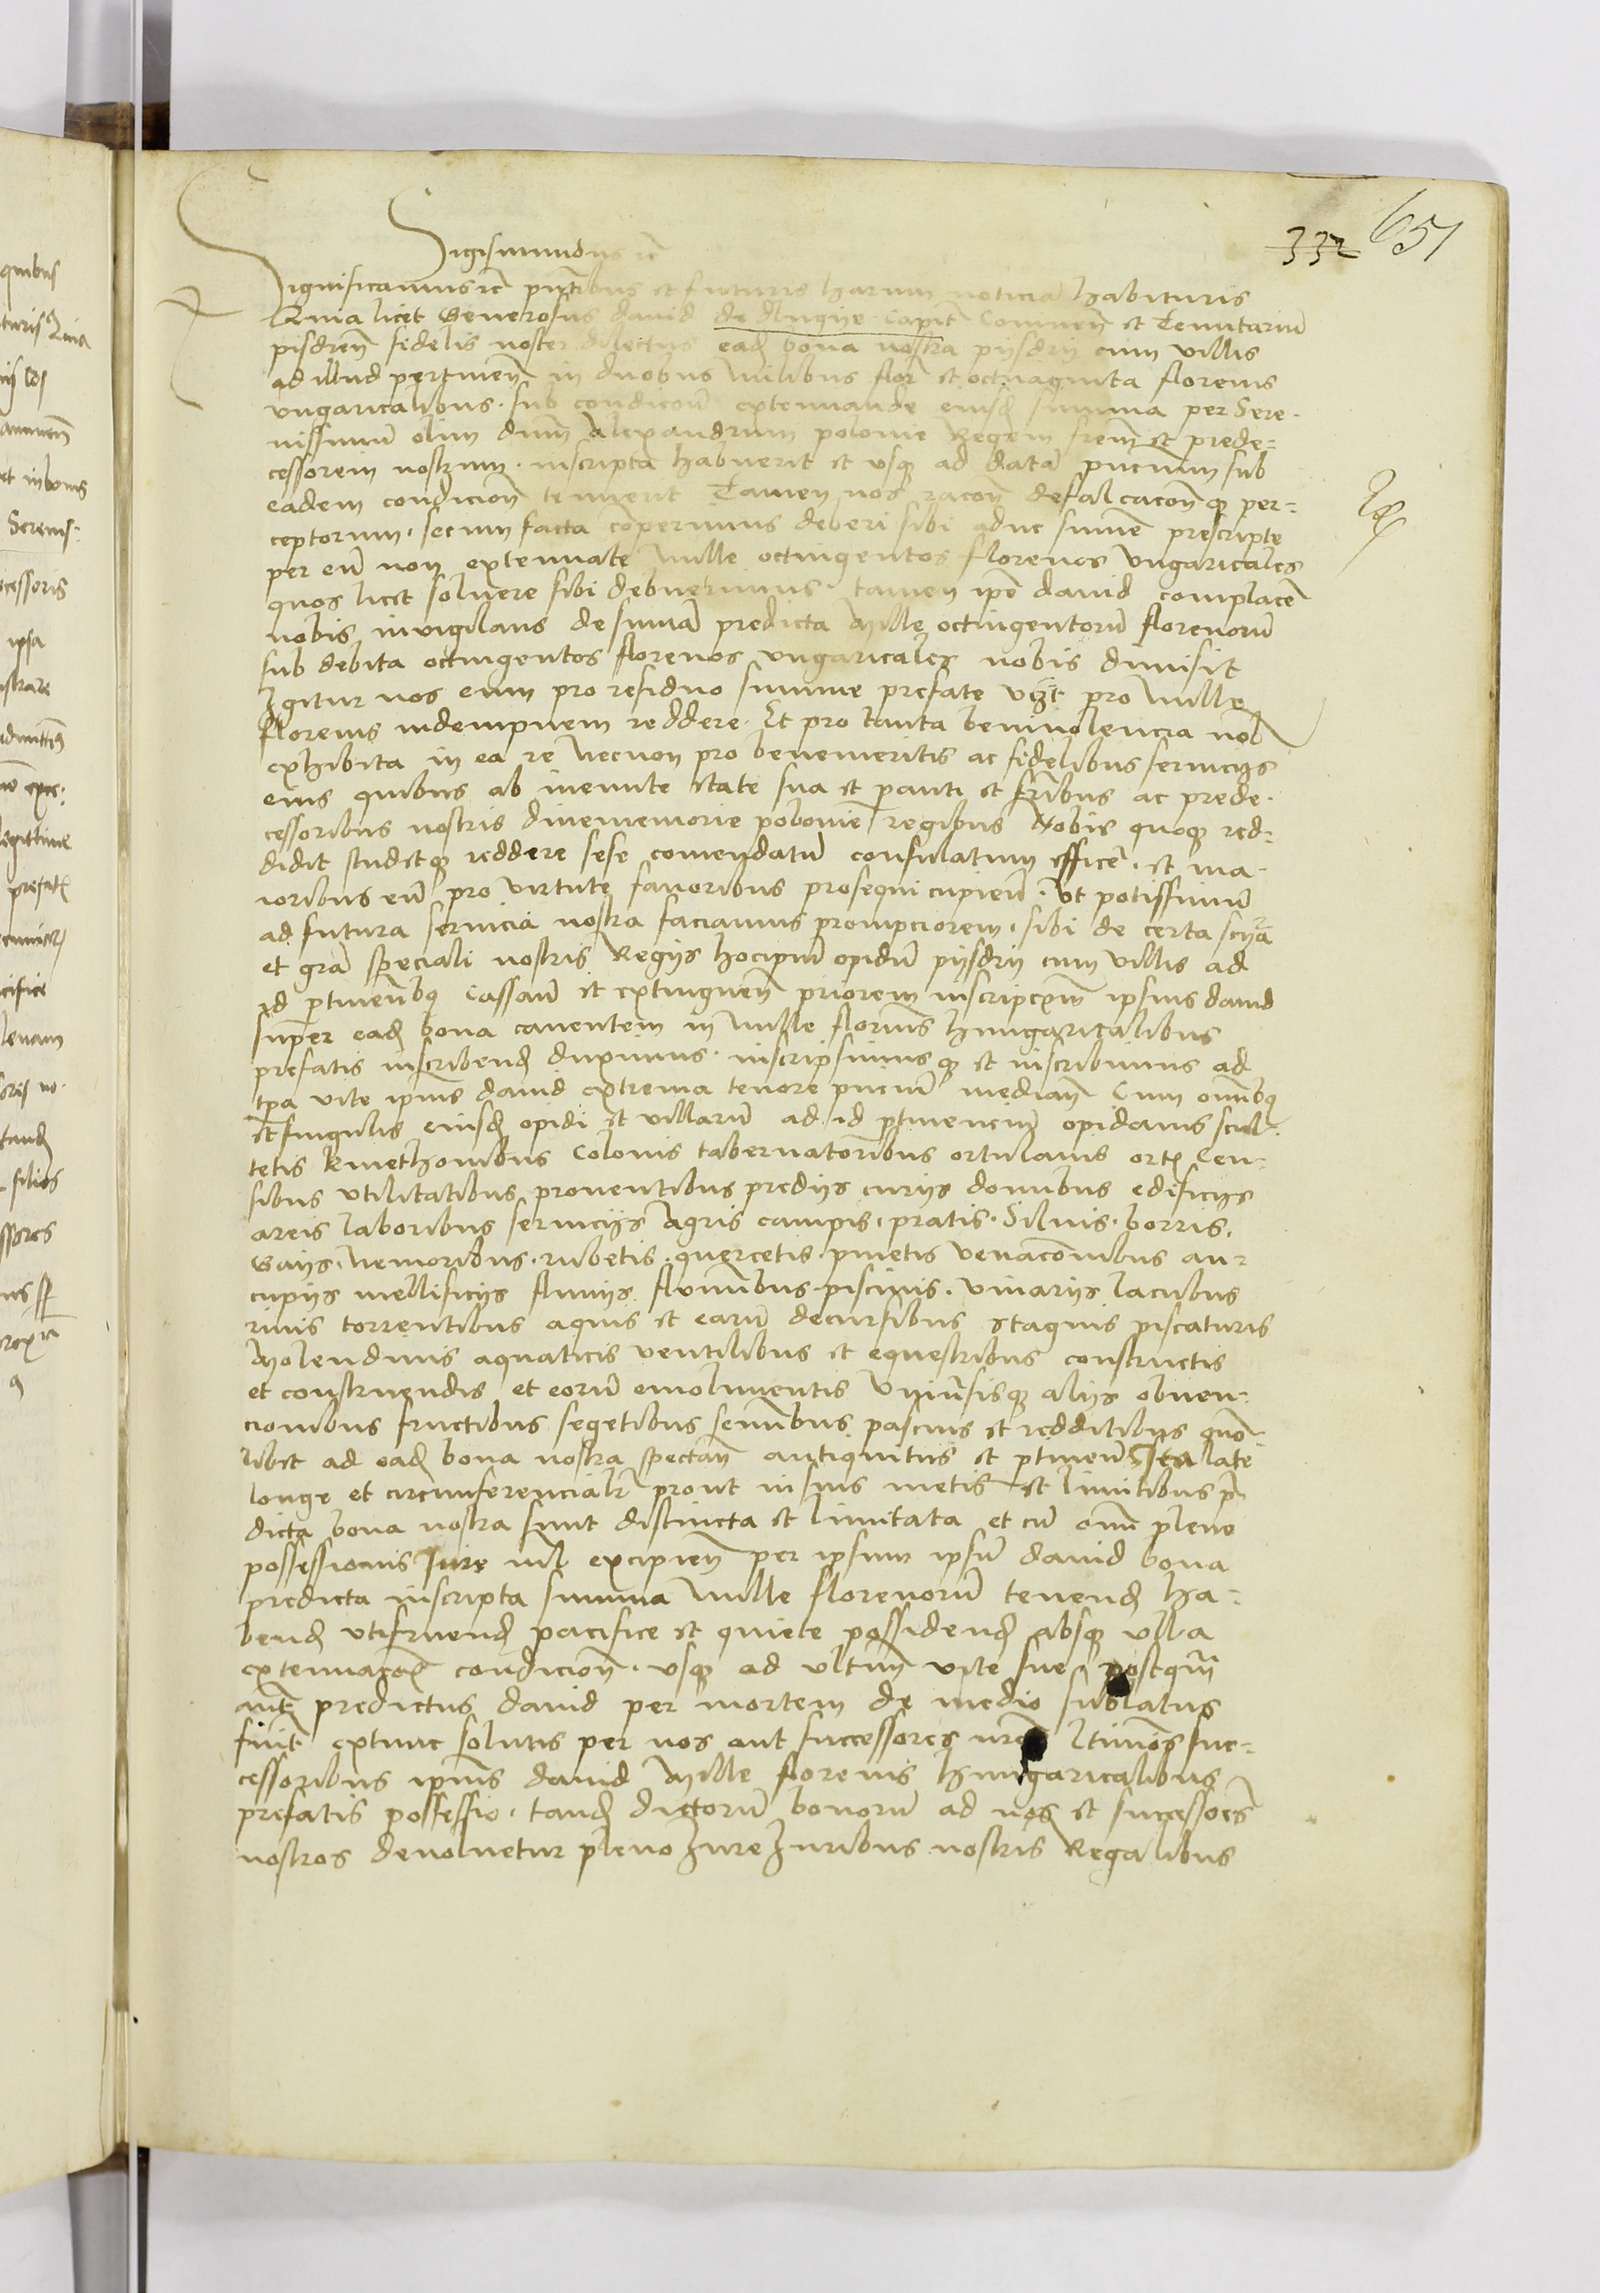 332 651
Sigismundus etc
Significamus etc pntibus et futuris harum noticiam habituris
Quia licet Generosus david de dlugye Capit Coninen et Tenutarius
pisdren fidelis noster dilectus ead bona nostra pysdry cum villis
ad illud pertinen in duobus milibus flor et octuaginta florenis
vngaricalibus sub condicione extenuande eiusd summa per Sere-
nissimu olim dnm Alexandrum polonie Regem frem et prede-
cessorem nostrum inscripta habuerit et vsq ad data pncium sub
eadem condicion tenuerit Tamen nos racon defalcaconq per-
ceptorum secum facta comperimus deberi sibi aduc summe prescripte
per eu non extenuate Mille octingentos florenos vngaricales
quos licet soluere sibi debuerimus tamen ipse david complacen
nobis invigilans de summa predicta Mille octingentoru florenoru
sub debita octingentos florenos vngaricales nobis dimisit
Igitur nos eum pro residuo summe prefate vz pro mille
florenis indempnem reddere Et pro tanta beniuolencia nob
exhibita in ea re Necnon pro benemeritis ac fidelibus seruicys
eius quibus ab ineunte etate sua et parenti et fribus ac prede-
cessoribus nostris diuememorie polonie regibus Nobis quoq red-
didit studetq reddere sese comendatu efficer et ma-
ioribus eu pro virtute fauoribus prosequi cupien Vt potissimu
ad futura seruicia nostra faciamus prompciorem sibi de certa scia
et gra speciali nostris Regys hocipm opidu pysdry cum villis ad
id ptinenbq Cassan et extinguen priorem inscripcem ipsius david
super ead bona cauentem in mille florenis hungaricalibus
prefatis inscribend duximus inscripsimusq et inscribimus ad
tpa vite ipius david extrema tenore pnciu median Cum omnibq
et singulis eiusd opidi et villaru ad id ptinenciu opidanis scul-
tetis kmethonibus Colonis tabernatoribus ortulanis ort Cen-
sibus vtilitatibus prouentibus predys curys domibus edificys
areis laboribus seruicys Agris campis pratis Siluis borris
Gays Nemoribus rubetis quercetis pinetis venacombus au-
cupys mellificys fluuys fluminbus piscinis Viuarys lacubus
riuis torrentibus aquis et earu decursibus stagnis piscaturis
Molendinis aquaticis ventilibus et equestribus constructis
et construendis et eoru emolumentis Vniusisq alys obuen-
cionibus fructibus segetibus pascuis et redditibus quo-
libet ad ead bona nostra spectan antiquitus et ptinen Ita late
longe et circumferencialr prout in suis metis et limitibus p
dicta bona nostra sunt distincta et limitata et cu omi pleno
possessionis Jure nil excipien per ipsum ipsu david bona
predicta inscripta summa mille florenoru tenend ha-
bend vtifruend pacifice et quiete possidend absq vlla
extenuacois condicion vsq ad vltim vite sue postqm
aut predictus david per mortem de medio sublatus
fuit extunc solutis per nos aut successores nros ltimos suc-
cessoribus ipius david Mille florenis hungaricalibus
prefatis possessio tand dictoru bonoru ad nos et successores
nostros deuoluetur pleno Jure Juribus nostris Regalibus